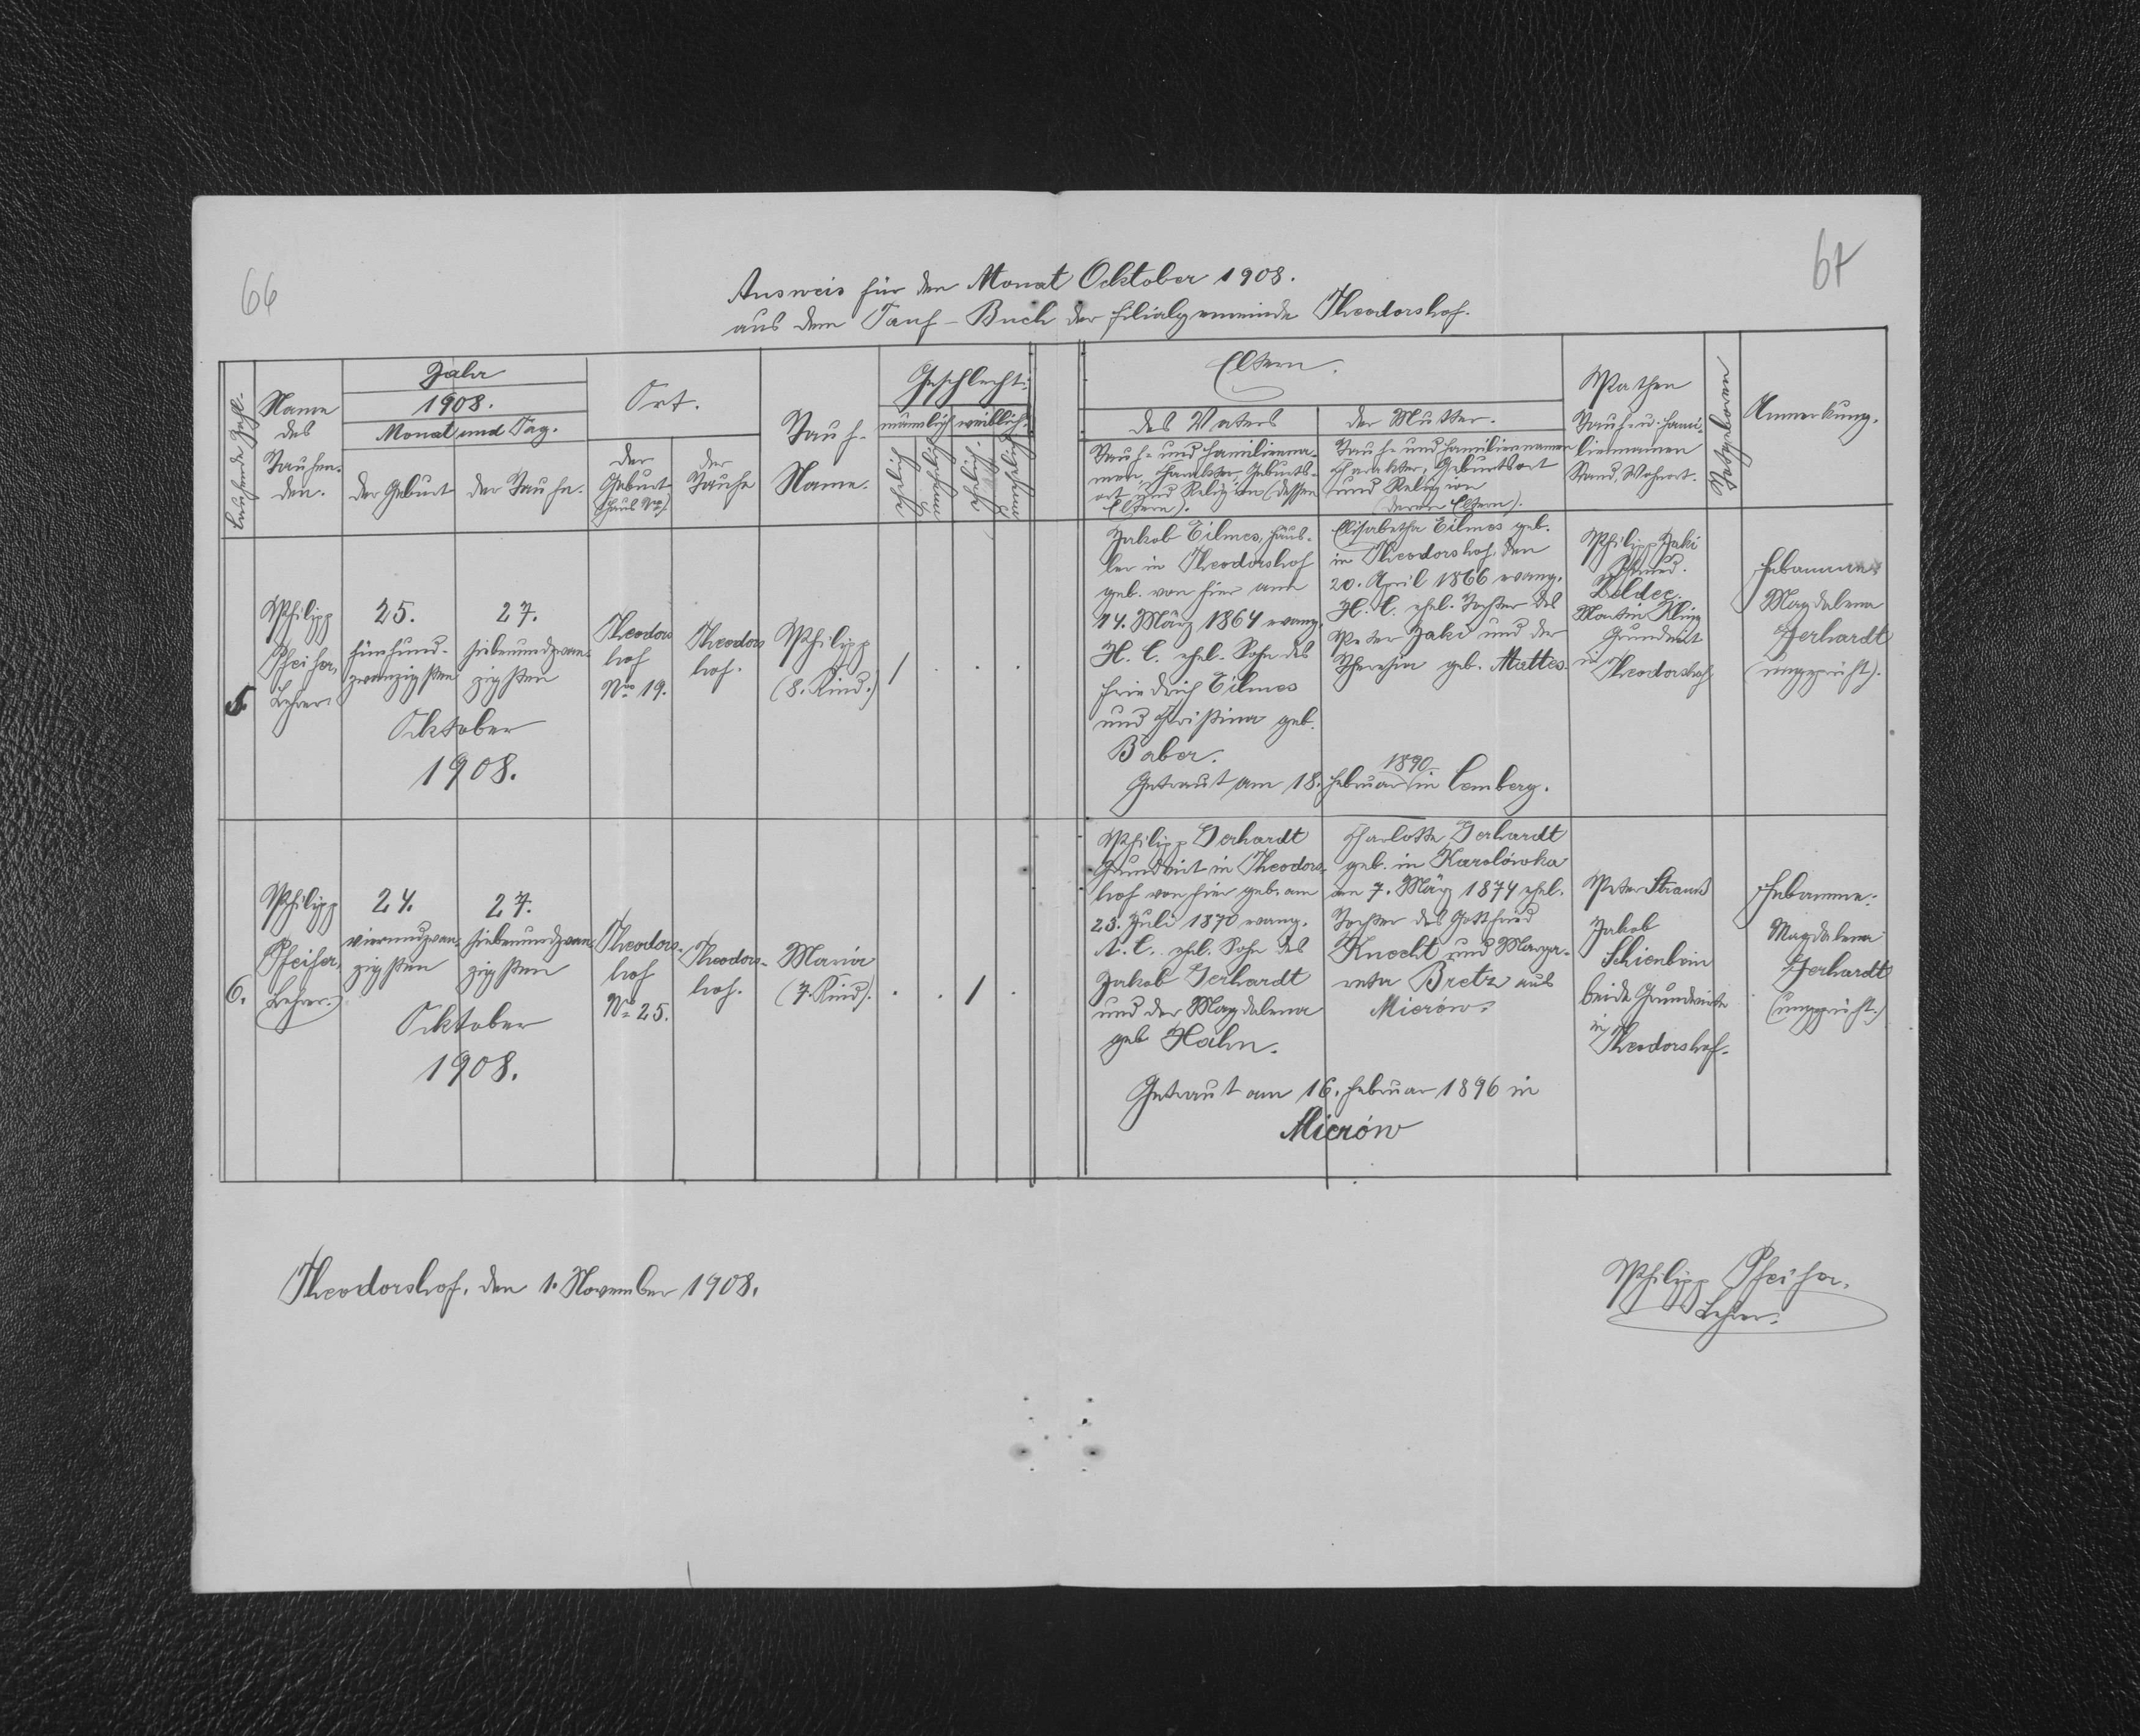 66
67
Ausweis für den Monat Oktober 1908.
aus dem Tauf-Buch der Filialgemeinde Theodorshof.
Laufende Zahl.
Name
des
Taufen-
den.
Jahr
1908.
Monat und Tag.
der Geburt
der Taufe.
Ort.
der
Geburt
(Haus Nro)
der
Taufe
Tauf-
Name.
Geschlecht:
männlich
weiblich
Eltern.
des Vaters
Tauf- und Familienna-
men, Charakter, Geburts-
ort und Religion (dessen
Eltern).
der Mutter.
Tauf- und Familiennamen
Charakter, Geburtsort
und Religion
(deren Eltern).
Pathen
Tauf- u. Fami-
liennamen
Stand, Wohnort.
Totgeboren
Anmerkung.
5.
Philipp
Pfeifer,
Lehrer.
25.
fünfund-
zwanzigsten
27.
siebenundzwan-
zigsten
Oktober
1908.
Theodors
hof
Nro 19.
Theodors
hof.
Philipp
(8. Kind.)
1
Jakob Eilmes, Häus-
ler in Theodorshof
geb. von hier am
14. März 1864 evang.
H. C. ehel. Sohn des
Friedrich Eilmes
und Christina geb.
Baber.
Elisabetha Eilmes geb.
in Theodorshof, den
20. April 1866 evang.
H. C. ehel. Tochter des
Peter Jaki und der
Theresia geb. Mattes
1890
Getraut am 18. Februar in Lemberg.
Philipp Jaki
Martin Kling
Grundwirt
in Theodorshof
Hebamme
Magdalena
Gerhardt
(ungeprüft).
6.
Philipp
Pfeifer,
Lehrer.
24.
vierundzwan-
zigsten
27.
siebenundzwan-
zigsten
Oktober
1908.
Theodors-
hof
No 25.
Theodors-
hof.
Maria
(7. Kind).
1
Philipp Gerhardt
Grundwirt in Theodors-
hof von hier geb. am
23. Juli 1870 evang.
A. C. ehel. Sohn des
Jakob Gerhardt
und der Magdalena
geb Hahn.
Charlotte Gerhardt
geb. in Karolówka
am 7. März 1874 ehel.
Tochter des Gottfried
Knecht und Marga-
reta Bretz aus
Mierów.
Getraut am 16. Februar 1896 in
Mierów
Peter Strauß
Jakob
Schienbein
beide Grundwirte
in
Theodorshof.
Hebamme.
Magdalena
Gerhardt
(ungeprüft.)
Theodorshof, den 1. November 1908.
Philipp Pfeifer.
Lehrer.